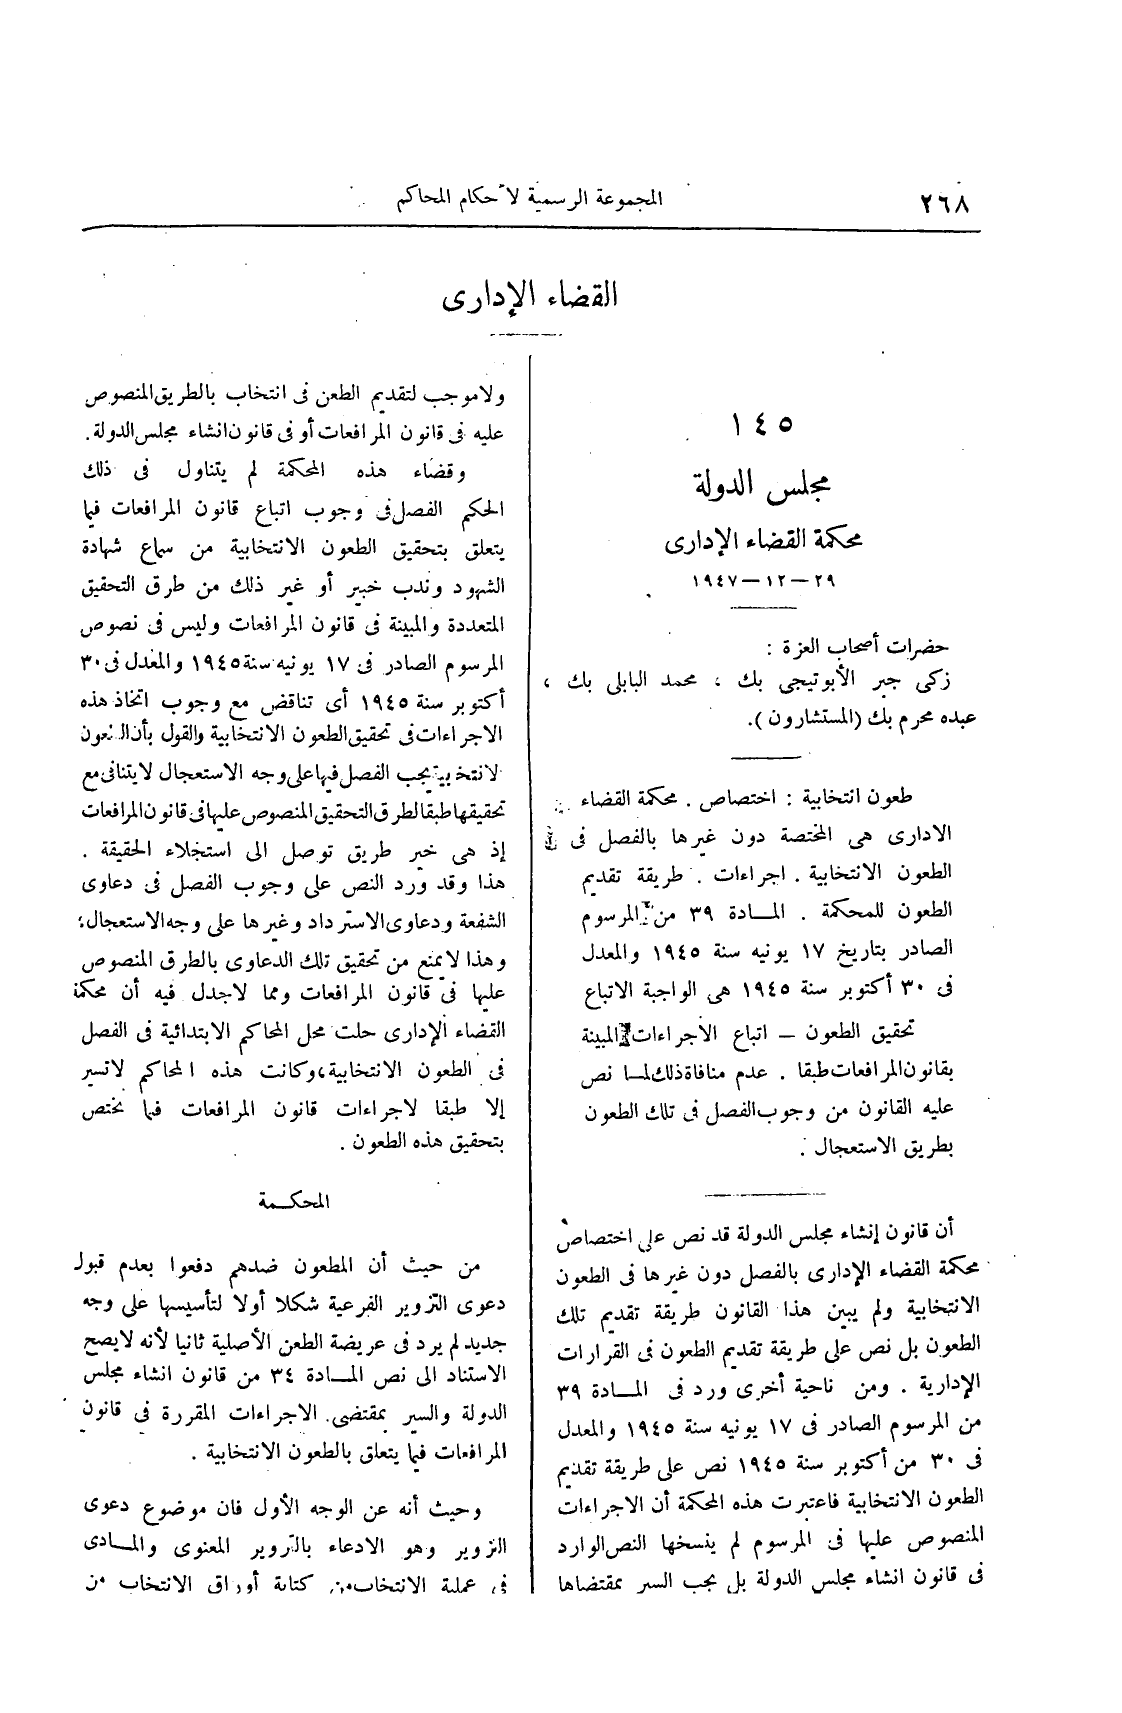 ٢٦٨
المجموعة الرسمية لأحكام المحاكم
القضاء الإدارى
١٤٥
مجلس الدولة
محكمة القضاء الإدارى
٢٩ – ١٢ – ١٩٤٧
حضرات أصحاب العزة :
زكى جبر الأبوتيجى بك ، محمد البابلى بك ،
عبده محرم بك (المستشارون ).
طعون انتخابية : اختصاص . محكمة القضاء
الادارى هى المختصة دون غيرها بالفصل فى
الطعون الانتخابية . اجراءات . طريقة تقديم
الطعون للمحكمة . المـادة ٣٩ من المرسوم
الصادر بتاريخ ١٧ يونيه سنة ١٩٤٥ والمعدل
فى ٣٠ أكتوبر سنة ١٩٤٥ هى الواجبة الاتباع
تحقيق الطعون – اتباع الأجراءات المبينة
بقانون المرافعات طبقا . عدم منافاة ذلك لما نص
عليه القانون من وجوب الفصل فى تلك الطعون
بطريق الاستعجال .
أن قانون إنشاء مجلس الدولة قد نص على اختصاص
محكمة القضاء الإدارى بالفصل دون غيرها فى الطعون
الانتخابية ولم يبين هذا القانون طريقة تقديم تلك
الطعون بل نص على طريقة تقديم الطعون فى القرارات
الإدارية . ومن ناحية أخرى ورد فى المـادة ٣٩
من المرسوم الصادر فى ١٧ يونيه سنة ١٩٤٥ والمعدل
فى ٣٠ من أكتوبر سنة ١٩٤٥ نص على طريقة تقديم
الطعون الانتخابية فاعتبرت هذه المحكمة أن الاجراءات
المنصوص عليها فى المرسوم لم ينسخها النص الوارد
فى قانون انشاء مجلس الدولة بل يجب السير بمقتضاها
ولا موجب لتقديم الطعن فى انتخاب بالطريق المنصوص
عليه فى قانون المرافعات أو فى قانون انشاء مجلس الدولة.
وقضاء هذه المحكمة لم يتناول فى ذلك
الحكم الفصل فى وجوب اتباع قانون المرافعات فيما
يتعلق بتحقيق الطعون الانتخابية من سماع شهادة
الشهود وندب خبير أو غير ذلك من طرق التحقيق
المتعددة والمبينة فى قانون المرافعات وليس فى نصوص
المرسوم الصادر فى ١٧ يونيه سنة ١٩٤٥ والمعدل فى ٣٠
أكتوبر سنة ١٩٤٥ أى تناقض مع وجوب اتخاذ هذه
الاجراءات فى تحقيق الطعون الانتخابية والقول بأن الطعون
لانتخابية يجب الفصل فيها على وجه الاستعجال لا يتنافى مع
تحقيقها طبقا لطرق التحقيق المنصوص عليها فى قانون المرافعات
إذ هى خير طريق توصل الى استجلاء الحقيقة .
هذا وقد ورد النص على وجوب الفصل فى دعاوى
الشفعة ودعاوى الاسترداد وغيرها على وجه الاستعجال؛
وهذا لا يمنع من تحقيق تلك الدعاوى بالطرق المنصوص
عليها فى قانون المرافعات ومما لا جدل فيه أن محكمة
القضاء الإدارى حلت محل المحاكم الابتدائية فى الفصل
فى الطعون الانتخابية، وكانت هذه المحاكم لا تسير
إلا طبقا لاجراءات قانون المرافعات فيما يختص
بتحقيق هذه الطعون .
المحكـمة
من حيث أن المطعون ضدهم دفعوا بعدم قبول
دعوى التزوير الفرعية شكلا أولا لتأسيسها على وجه
جديد لم يرد فى عريضة الطعن الأصلية ثانيا لأنه لا يصح
الاستناد الى نص المـادة ٣٤ من قانون انشاء مجلس
الدولة والسير بمقتضى الاجراءات المقررة فى قانون
المرافعات فيما يتعلق بالطعون الانتخابية .
وحيث أنه عن الوجه الأول فان موضوع دعوى
التزوير وهو الادعاء بالتزوير المعنوى والمـادى
فى عملية الانتخاب من كتابة أوراق الانتخاب من